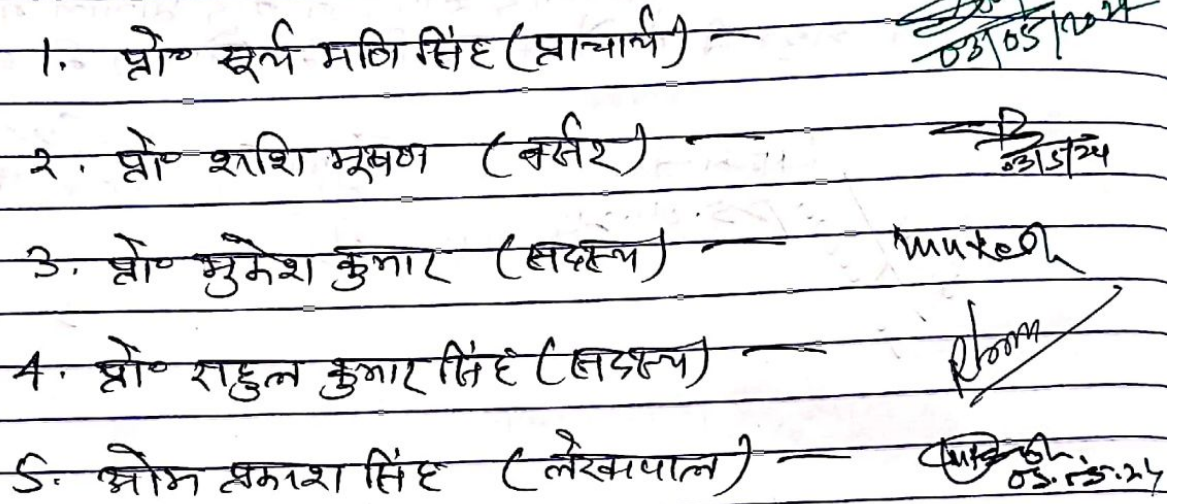 1. प्रो० सूर्य मणि सिंह (प्राचार्य) — 03/05/2024
2. प्रो० शशि भूषण (बर्सर) — 03/5/24
3. प्रो० मुकेश कुमार (सदस्य) — Mukesh
4. प्रो० राहुल कुमार सिंह (सदस्य) —
5. ओम प्रकाश सिंह (लेखापाल) — 03.05.24